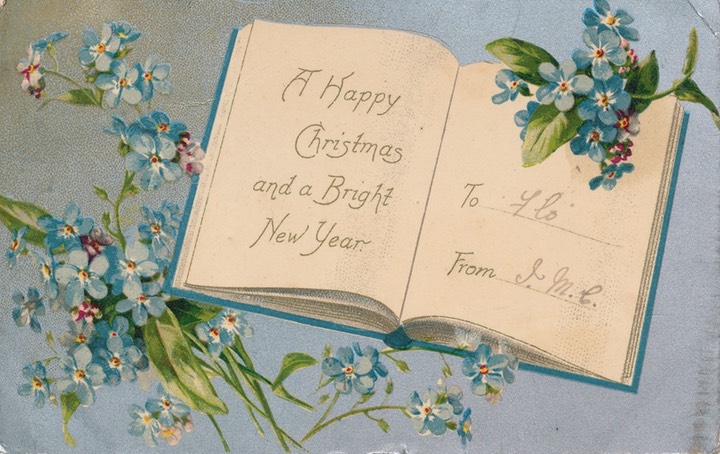 A Happy
Christmas
and a Bright
New Year.
To Flo
From J. M. C.